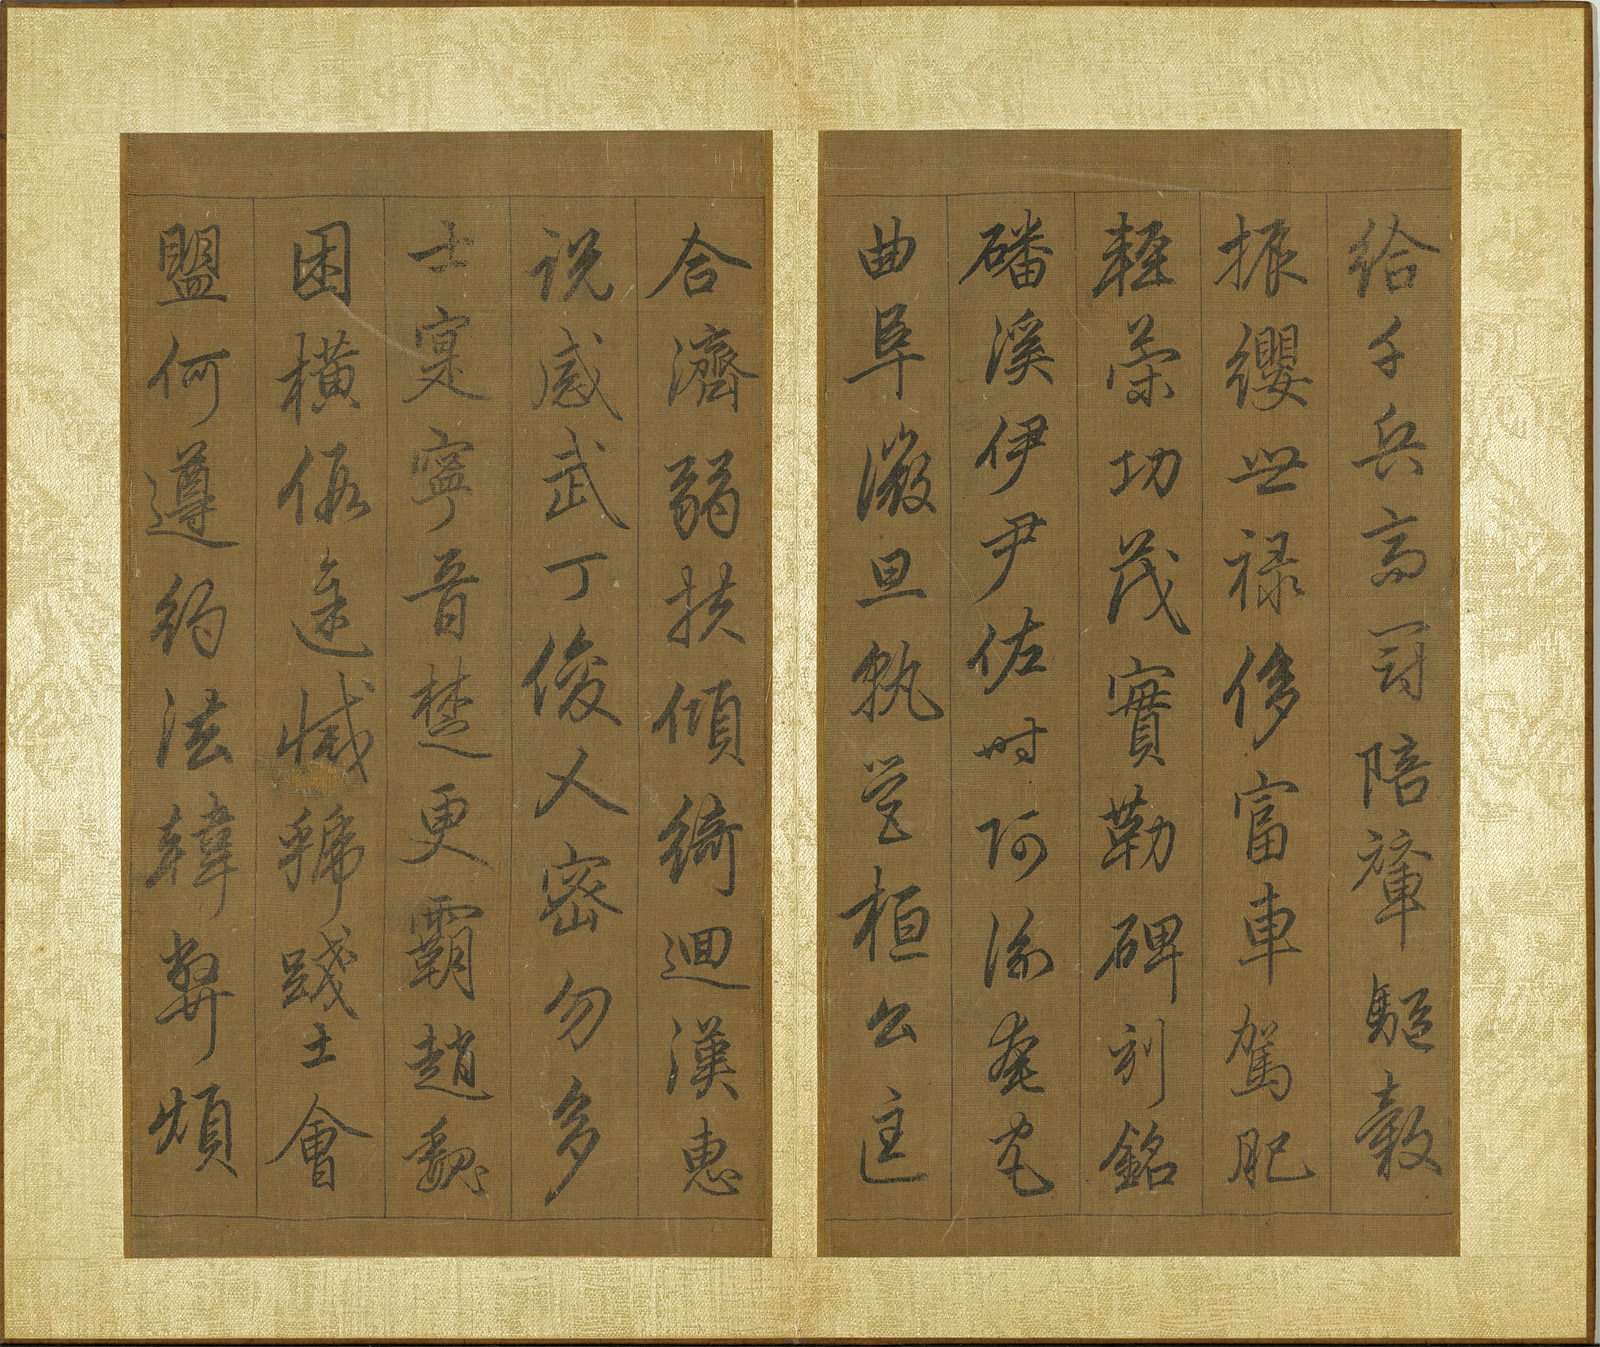 給千兵高冠陪輦驅轂
振纓世祿侈富車駕肥
輕策功茂實勒碑刻銘
磻溪伊尹佐時阿衡奄宅
曲阜微旦孰營桓公匡
合濟弱扶傾綺迴漢惠
說感武丁俊乂密勿多
士寔寧晉楚更霸趙魏
困橫假途滅虢踐土會
盟何遵約法韓弊煩